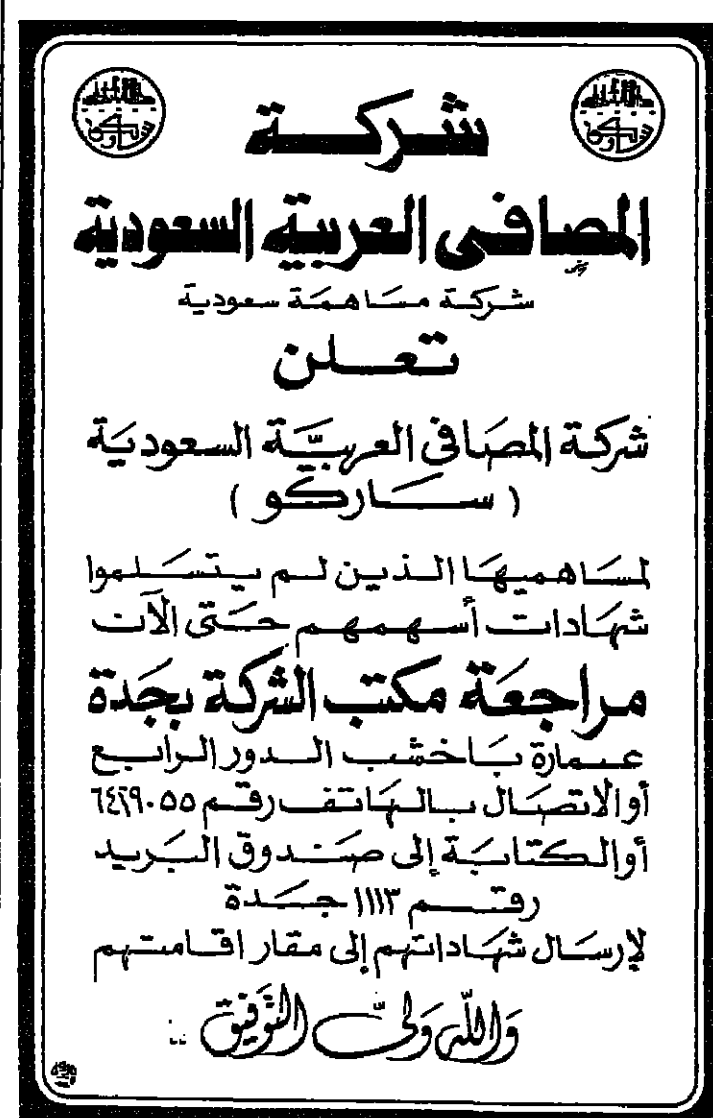 شركة
المصافى العربية السعودية
شركة مساهمة سعودية
تعلن
شركة المصافي العربية السعودية
( ساركو )
لمساهميها الذين لم يتسلموا
شهادات أسهمهم حتى الآن
مراجعة مكتب الشركة بجدة
عمارة باخشب الدور الرابع
أو الاتصال بالهاتف رقم ٦٤٢٩٠٥٥
أو الكتابة إلى صندوق البريد
رقم ١١١٣ جدة
لإرسال شهاداتهم إلى مقار اقامتهم
والله ولي التوفيق ..